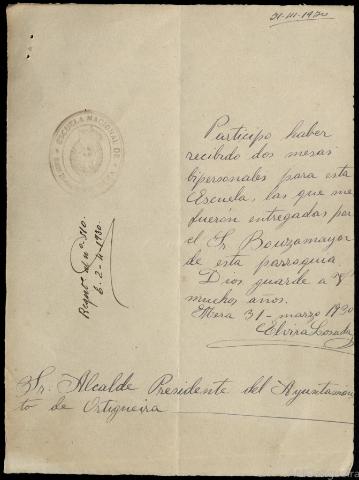 31-III-1930
Participo haber
recibido dos mesas
bipersonales para esta
Escuela, las que me
fueron entregadas por
el Sr. Bouzamayor
de esta parroquia.
Dios guarde a V
muchos años.
Mera 31- marzo 1930
Elvira Losada
ESCUELA NACIONAL DE
6-2-4-1930.
Sr. Alcalde Presidente del Ayuntamien
to de Ortigueira